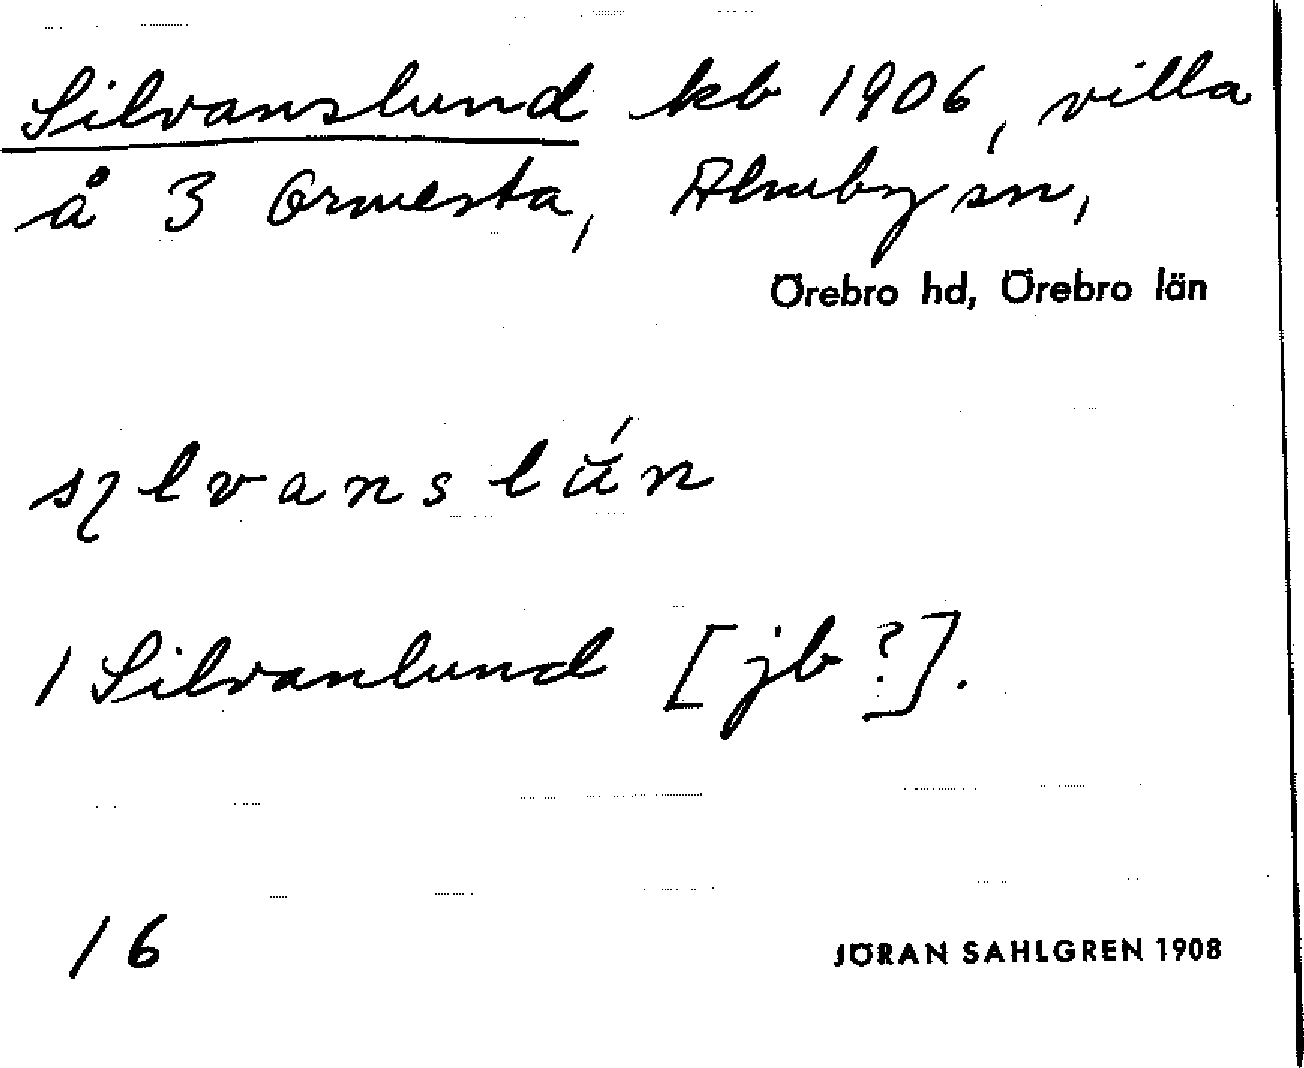 Silvanslund kb 1906, villa
å 3 Ormesta, Almby sn,
Örebro hd, Örebro län
sılvanslún
1 Silvanlund [jb?].
16
JÖRAN SAHLGREN 1908